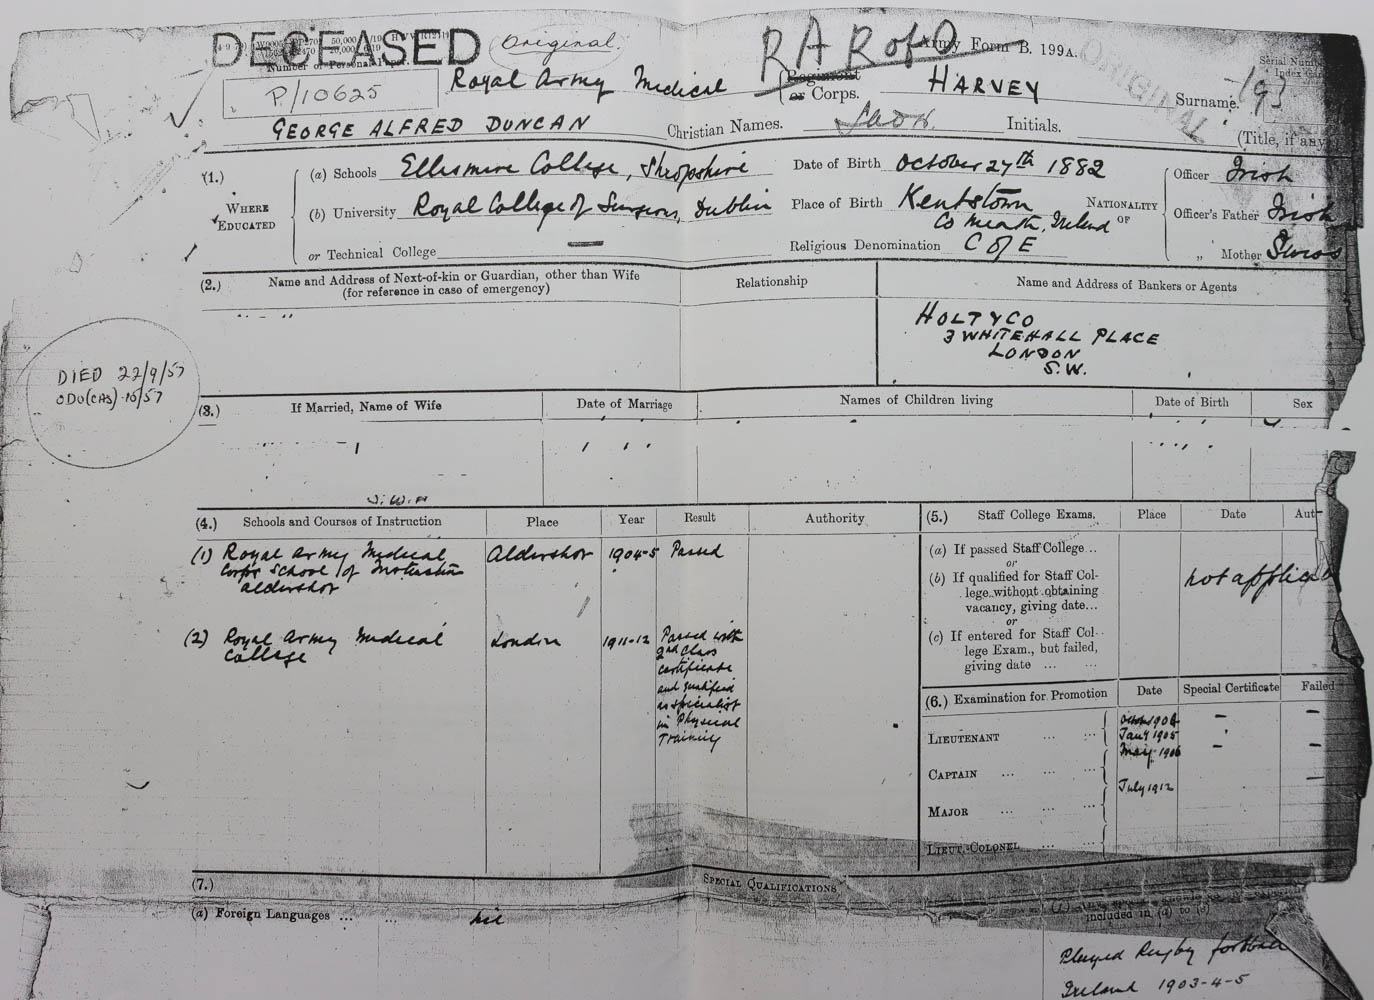 DECEASED Original. R A R of O Army Form B. 199A. ORIGINAL
Number of Personal
P/10625 Royal Army Medical (Regiment or Corps. HARVEY Surname.
GEORGE ALFRED DUNCAN Christian Names. Initials. (Title, if any
(1.) WHERE EDUCATED
(a) Schools Ellesmere College, Shropshire Date of Birth October 27th 1882 NATIONALITY OF Officer Irish
(b) University Royal College of Surgeons, Dublin Place of Birth Kentstown Officer's Father Irish
Co Meath, Ireland
or Technical College — Religious Denomination C of E „ Mother Swiss
(2.) Name and Address of Next-of-kin or Guardian, other than Wife Relationship Name and Address of Bankers or Agents
(for reference in case of emergency)
HOLT & CO
3 WHITEHALL PLACE
LONDON
S.W.
DIED 22/9/57
(3.) If Married, Name of Wife Date of Marriage Names of Children living Date of Birth Sex
(4.) Schools and Courses of Instruction Place Year Result Authority
(1) Royal Army Medical Aldershot 1904-5 Passed
Corps School of Instruction
Aldershot
(2) Royal Army Medical London 1911-12 Passed with
College 2nd Class
certificate
and qualified
as specialist
in Physical
Training
(5.) Staff College Exams. Place Date Aut
(a) If passed Staff College...
or
(b) If qualified for Staff Col-
lege without obtaining
vacancy, giving date...
not applic
or
(c) If entered for Staff Col-
lege Exam., but failed,
giving date ... ...
(6.) Examination for Promotion Date Special Certificate Failed
LIEUTENANT ... ... Jany 1905
May 1906
CAPTAIN ... ... ...
July 1912
MAJOR ... ... ...
LIEUT.-COLONEL ... ...
(7.) SPECIAL QUALIFICATIONS
(a) Foreign Languages ... ... nil
included in (a) to (e)
Played Rugby football
Ireland 1903-4-5